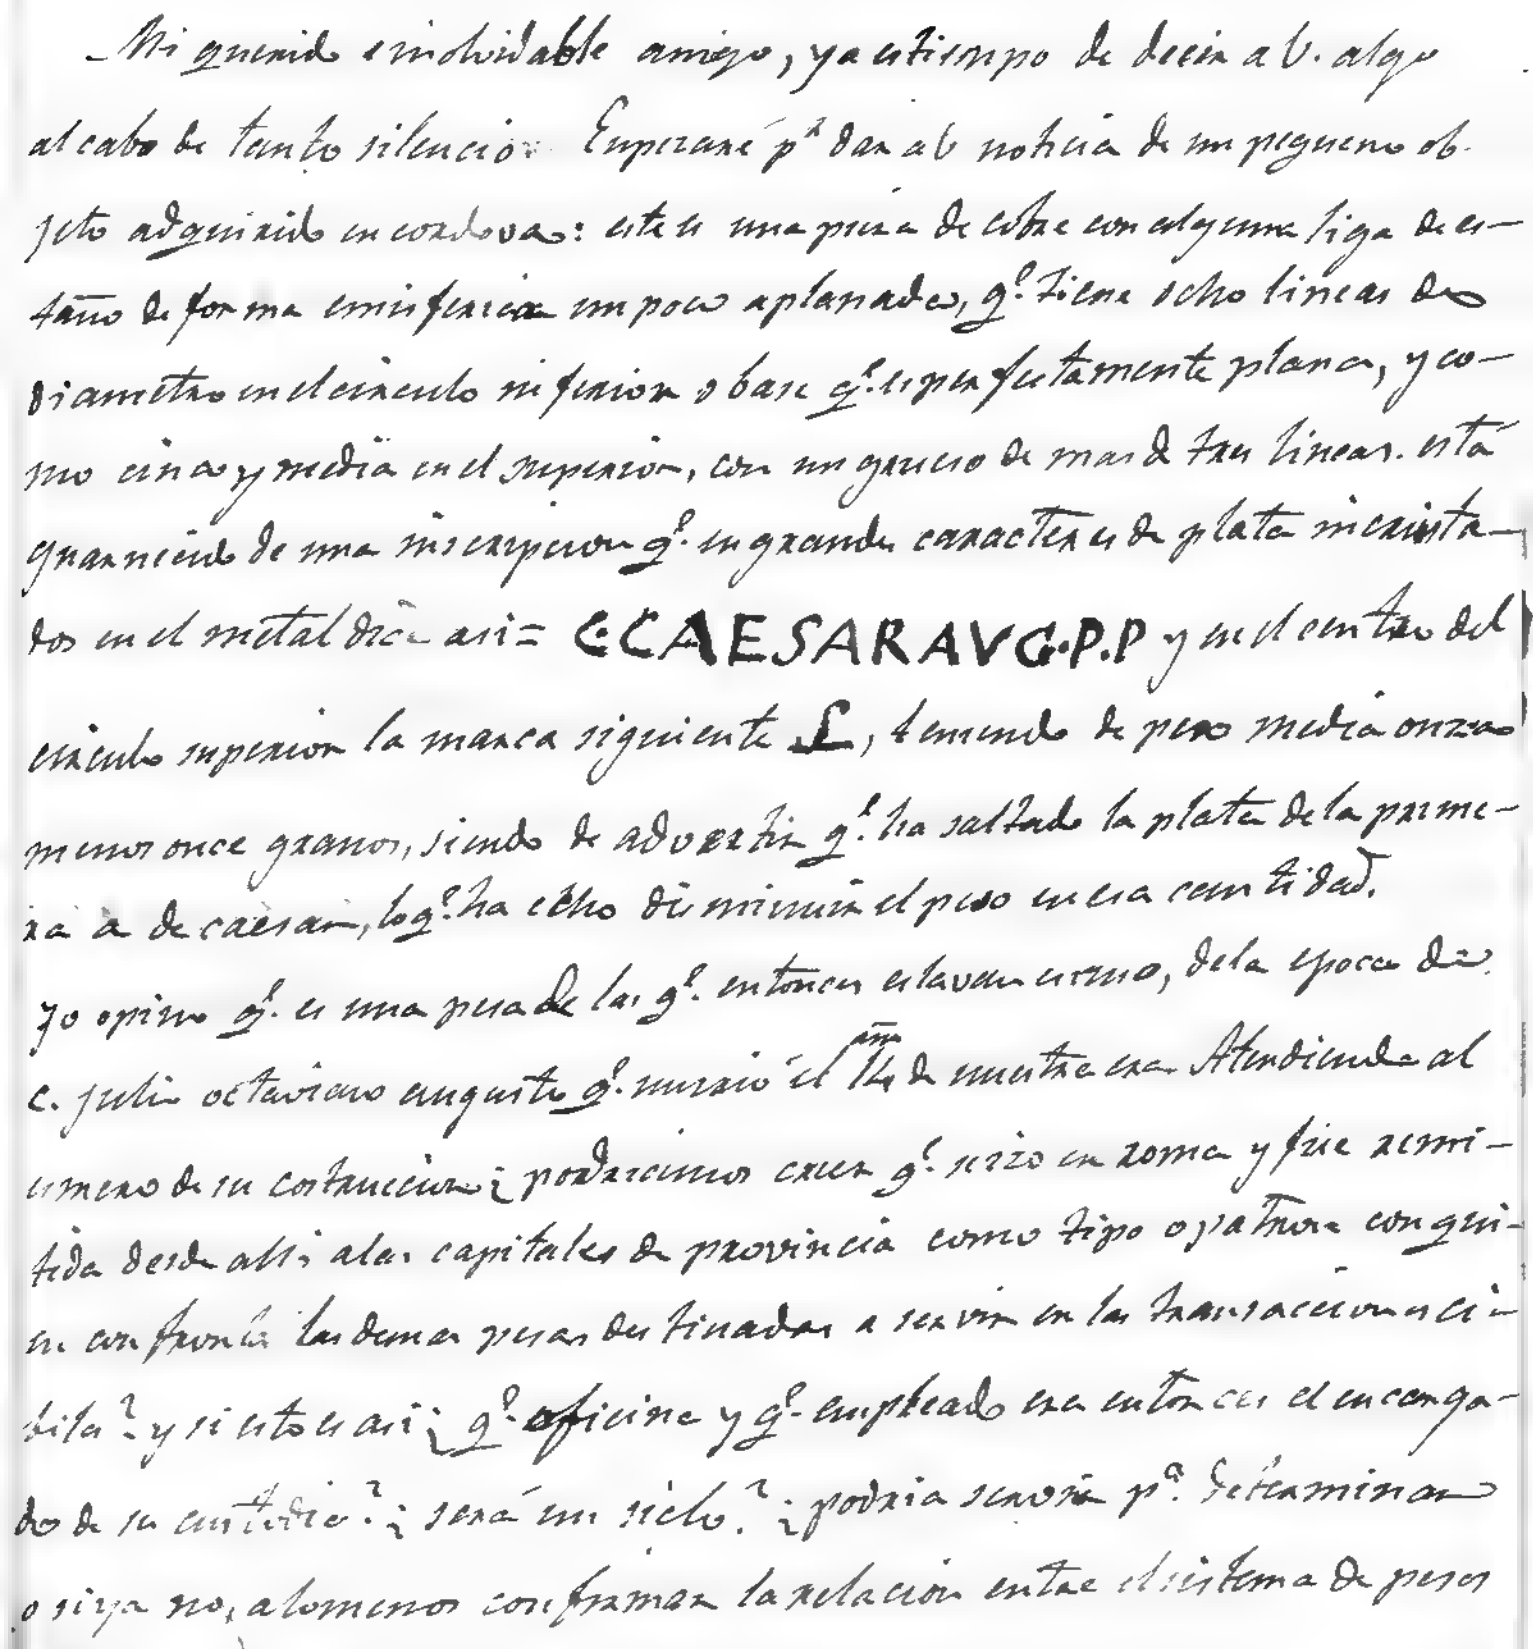 Mi querido e inolvidable amigo, ya es tiempo de decir a V. algo
al cabo de tanto silencio. Enpezaré pª dar a V noticia de un pequeno ob-
jeto adquirido en cordova: este es una pieza de cobre con alguna liga de es-
taño de forma emisferica un poco aplanada, q.e tiene ocho lineas de
diametro en el circulo inferior o base q.e es perfectamente plana, y co-
mo cinco y media en el superior, con un grueso de mas de tres lineas. está
guarnecido de una inscripcion q.e en grandes caracteres de plata incrusta-
dos en el metal dice asi = C.CAESARAVG.P.P y en el centro del
circulo superior la marca siguiente £, teniendo de peso media onza
menos once granos, siendo de advertir q.e ha saltado la plata de la prime-
ra a de caesar, lo q.e ha echo disminuir el peso en esa cantidad.
yo opino q.e es una pesa de las q.e entonces estavan en uso, de la epoca de
c. julio octaviano augusto q.e murió el año 14 de nuestra era Atendiendo al
esmero de su costruccion ¿ podriamos creer q.e se izo en roma y fue remi-
tida desde alli a las capitales de provincia como tipo o patron con qui-
en confrontar las demas pesas destinadas a servir en las transacciones ci-
biles? y si esto es asi ¿ q.e oficina y q.e empleado era entonces el encarga-
do de su custodia? ¿ será un siclo? ¿ podria servir pª determinar
o si ya no, a lo menos confirmar la relacion entre el sistema de pesos